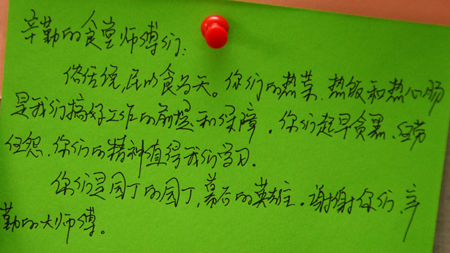 辛勤的食堂师傅们:
俗话说,民以食为天。你们的热菜、热饭和热心肠
是我们搞好工作的前提和保障。你们起早贪黑、任劳
任怨,你们的精神值得我们学习。
你们是园丁的园丁,幕后的英雄。谢谢你们,辛
勤的大师傅。